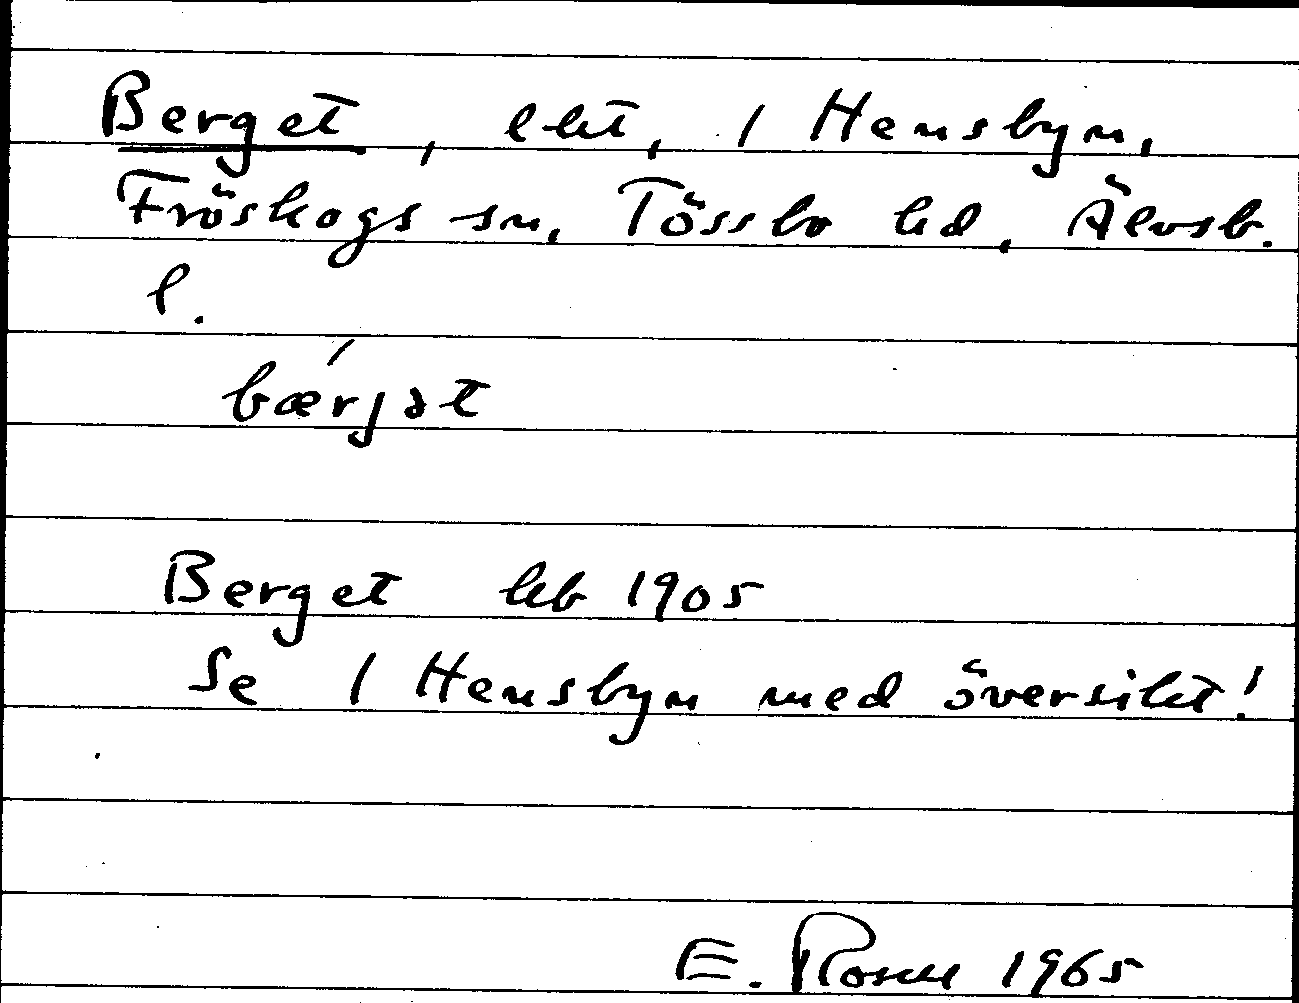 Berget, lht, 1 Hensbyn,
Fröskogs sn, Tössbo hd, Älvsb.
l.
bærjət
Berget hb 1905
Se 1 Hensbyn med översikt!
E. 1965